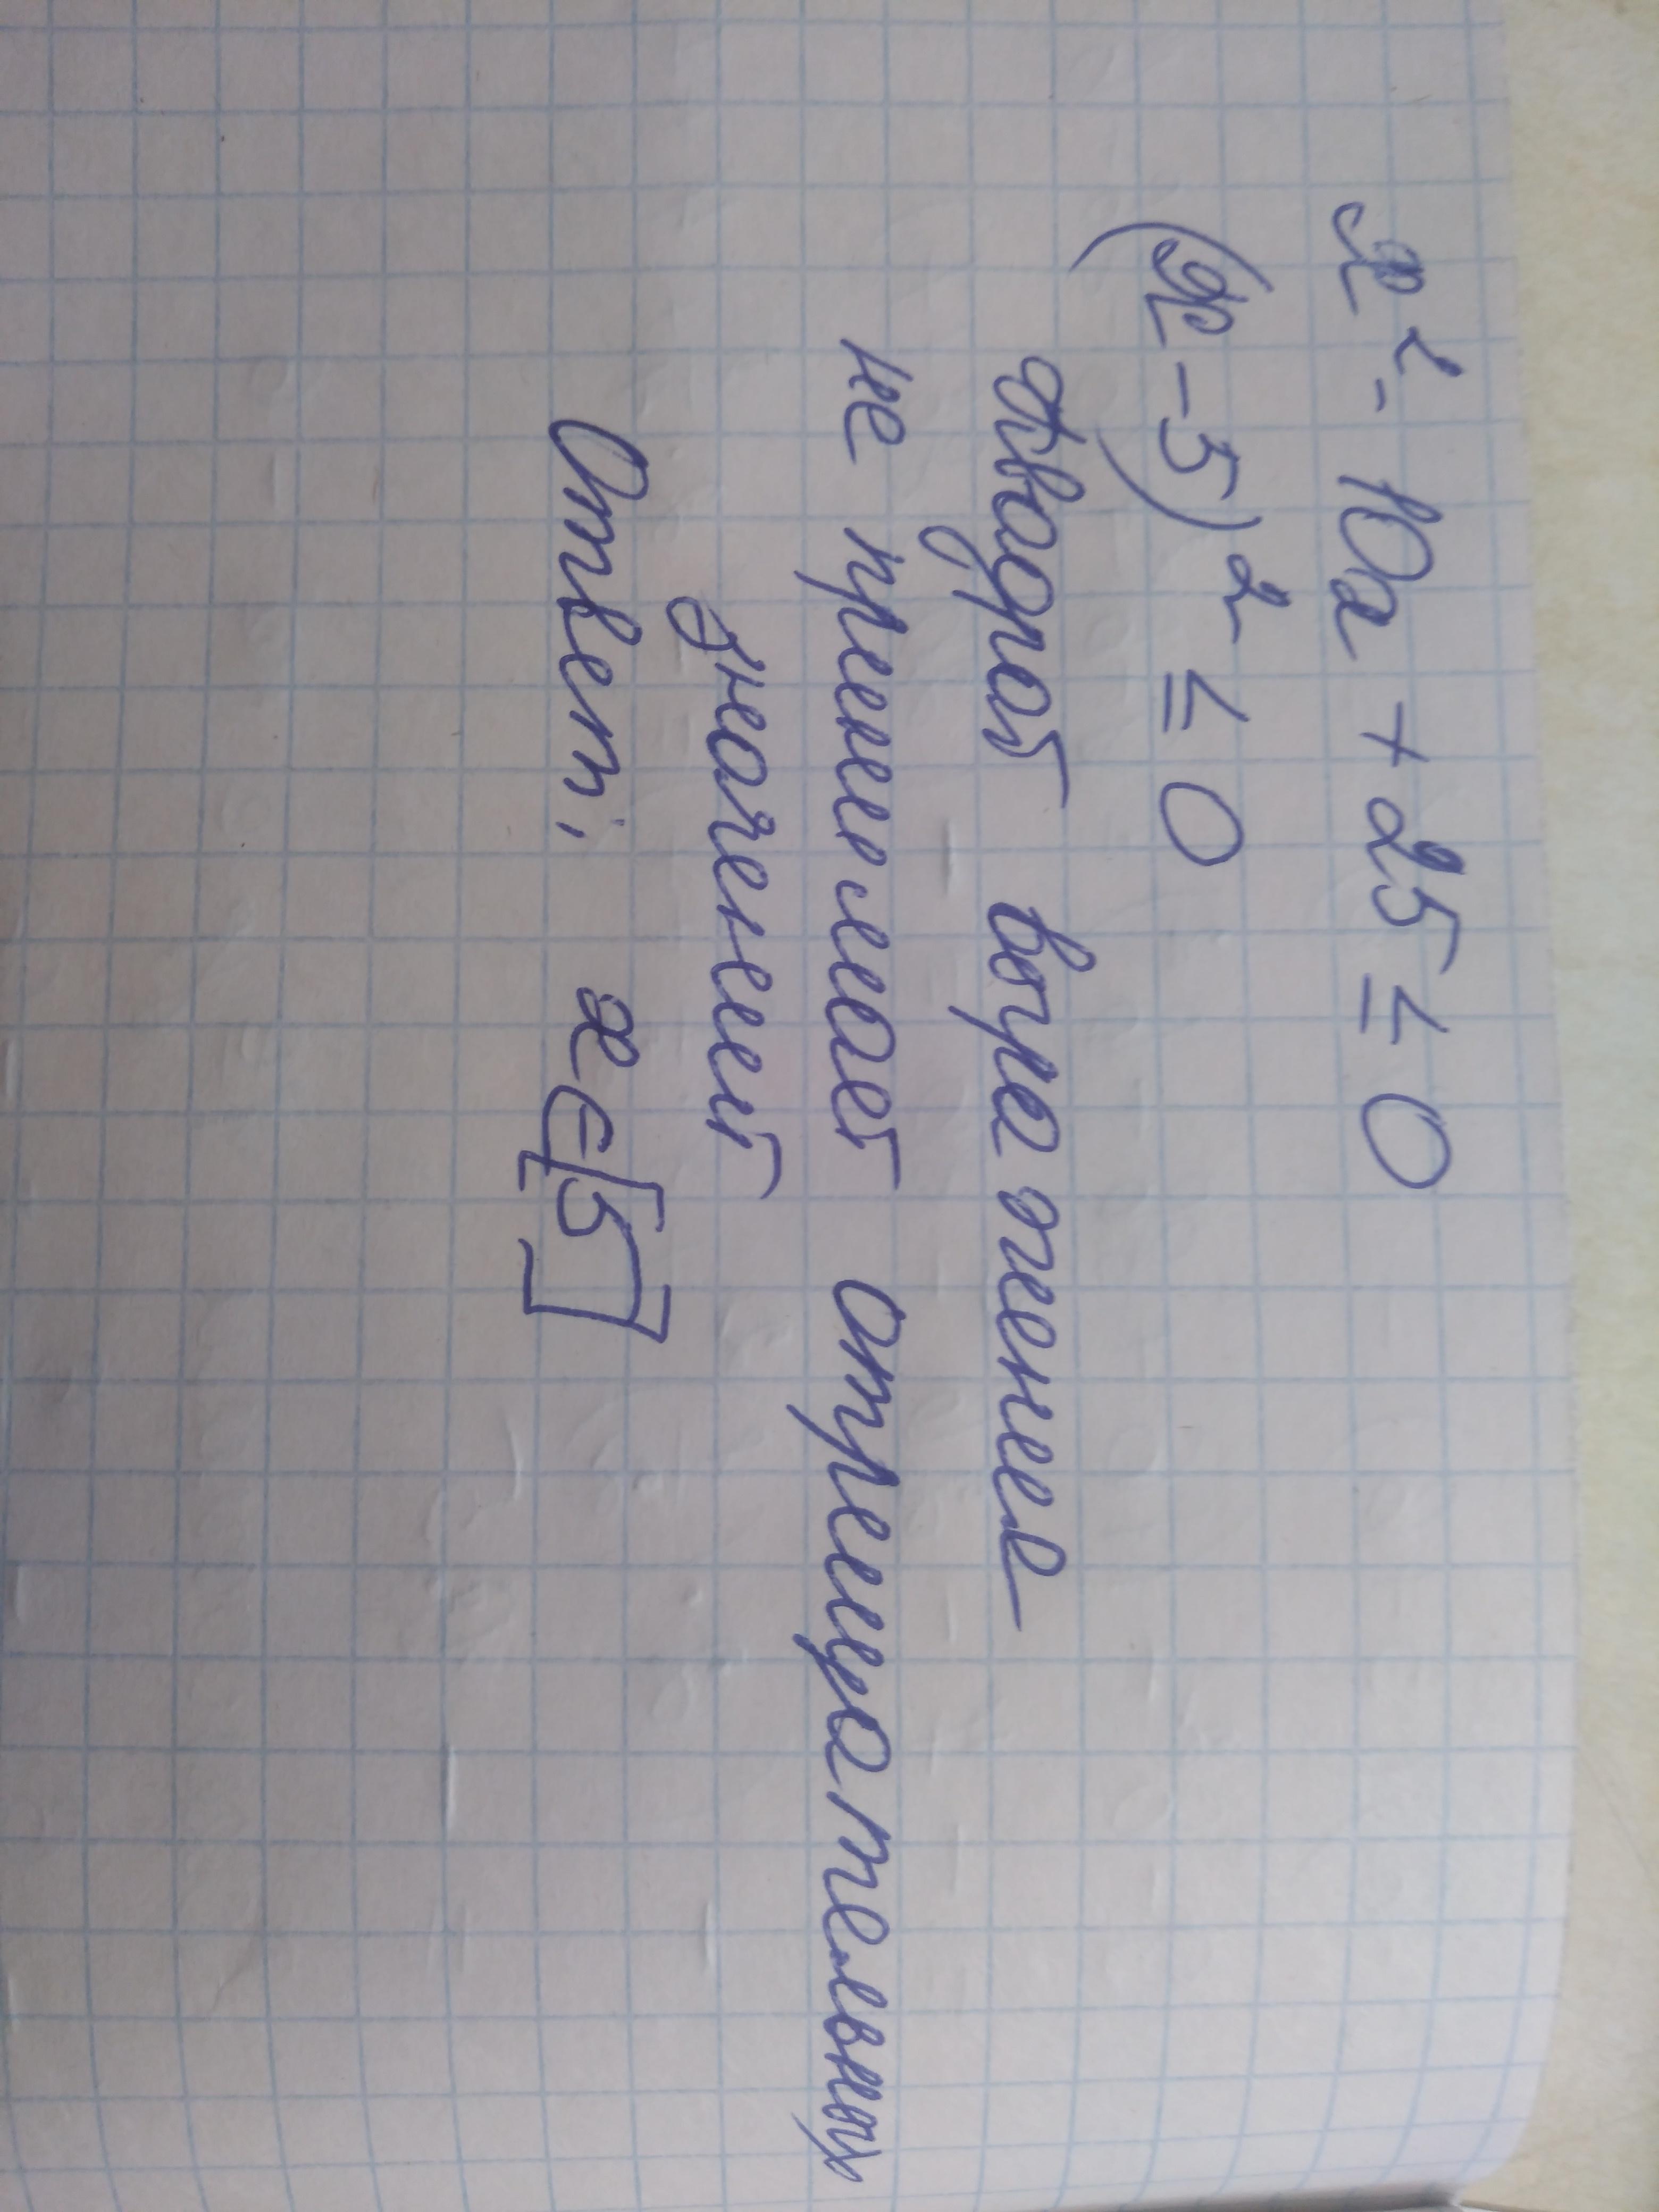 x² - 10x + 25 ≤ 0
(x - 5)² ≤ 0
квадрат выражение
не принимает отрицательных
значений
Ответ: x ∈ [5]